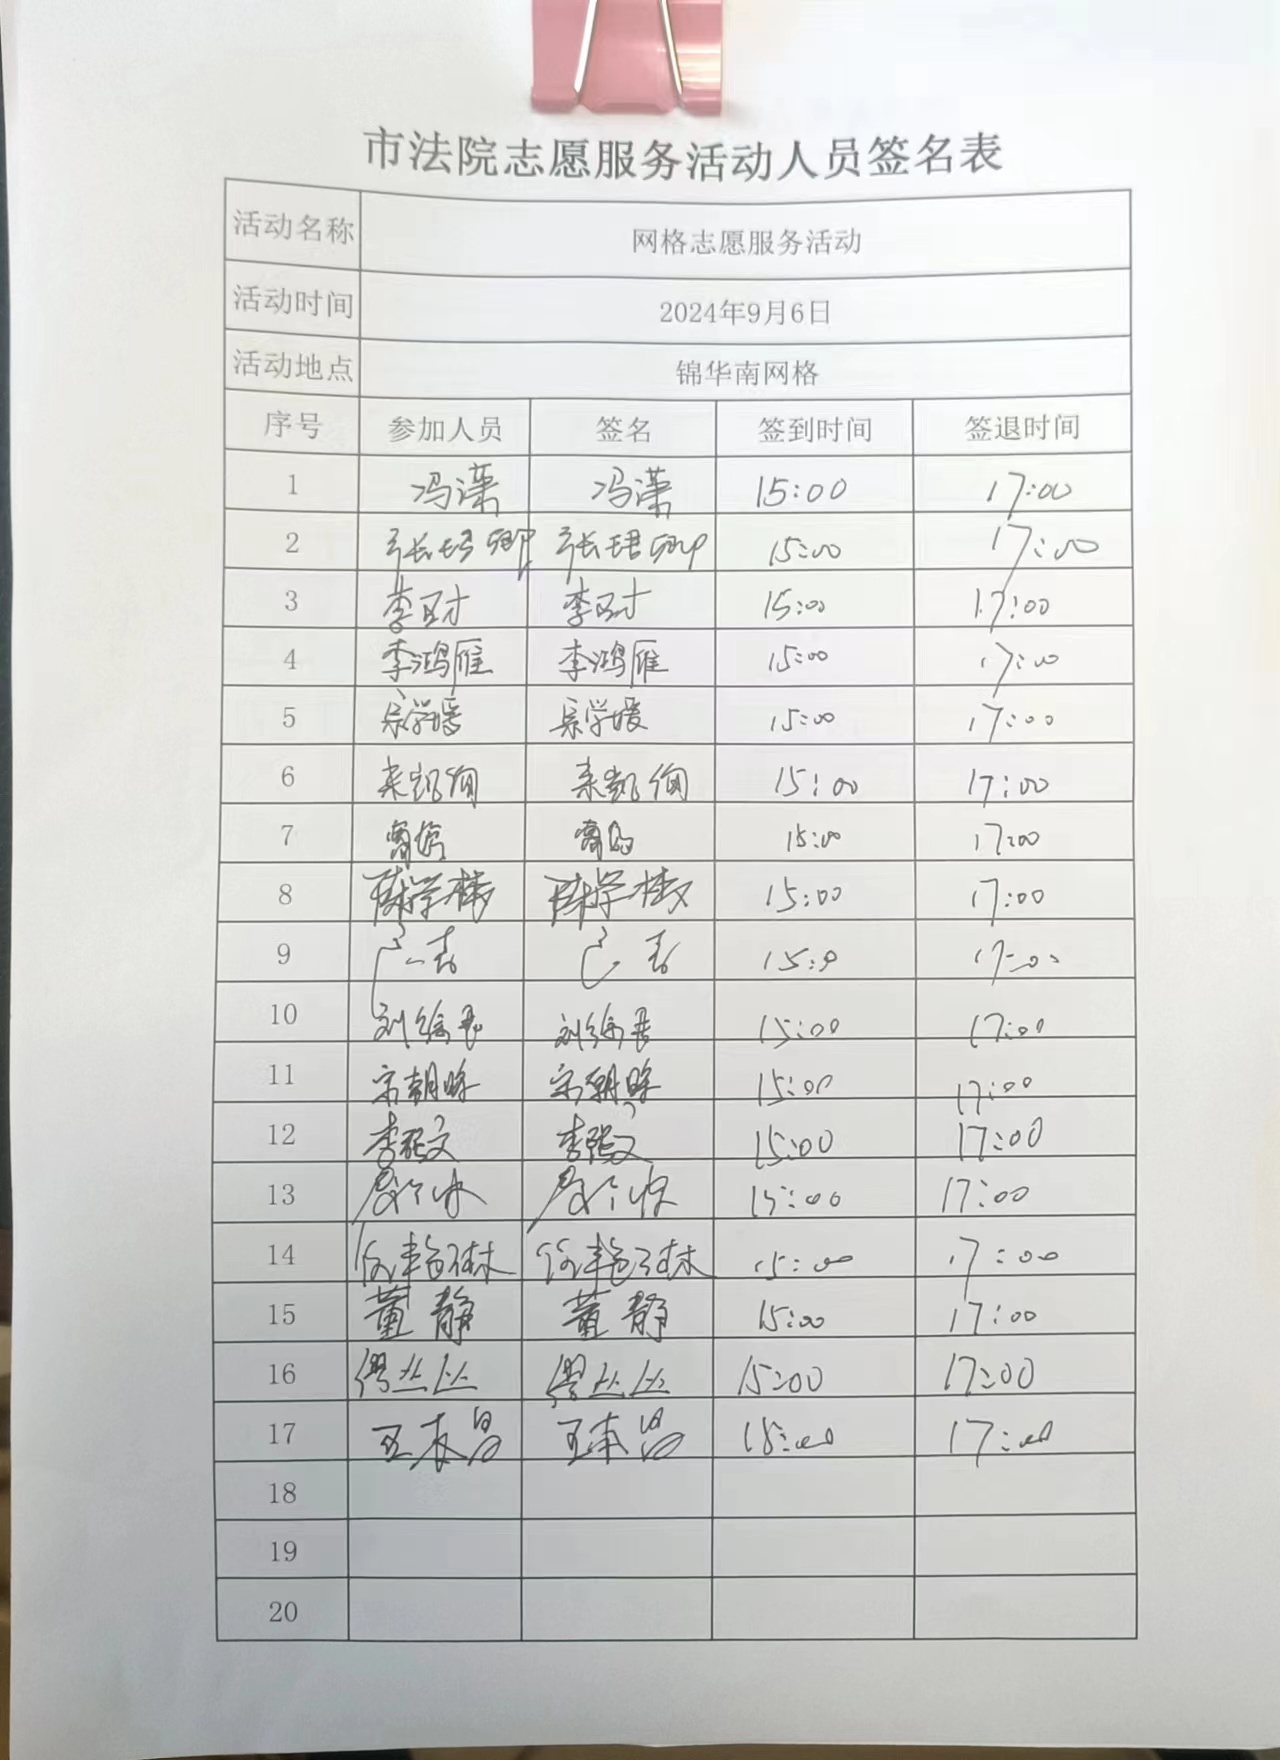 市法院志愿服务活动人员签名表
活动名称 网格志愿服务活动
活动时间 2024年9月6日
活动地点 锦华南网格
序号 参加人员 签名 签到时间 签退时间
1 冯潇 冯潇 15:00 17:00
2 张珺卿 张珺卿 15:00 17:00
3 李 李 15:00 17:00
4 李鸿雁 李鸿雁 15:00 17:00
5 学媛 学媛 15:00 17:00
6 凯绚 凯绚 15:00 17:00
7 15:00 17:00
8 陈学栋 陈学栋 15:00 17:00
9 15:0 17:00
10 刘 刘 15:00 17:00
11 宋朝晖 宋朝晖 15:00 17:00
12 李 文 李 文 15:00 17:00
13 15:00 17:00
14 15:00 17:00
15 董静 董静 15:00 17:00
16 缪丛丛 缪丛丛 15:00 17:00
17 王本昌 王本昌 15:00 17:00
18
19
20